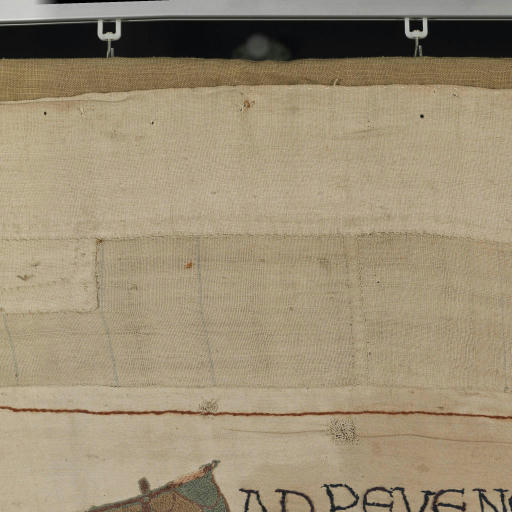 AD PEVEN